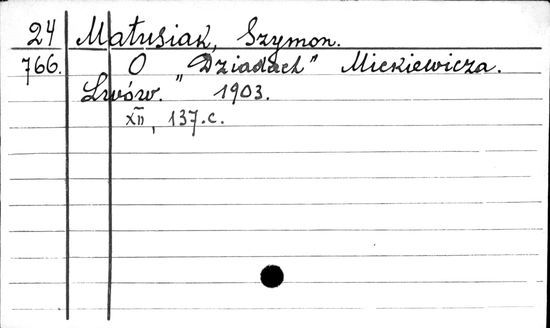 24 Matusiak, Szymon.
766. O „Dziadach" Mickiewicza.
Lwów. 1903.
XII, 137.c.